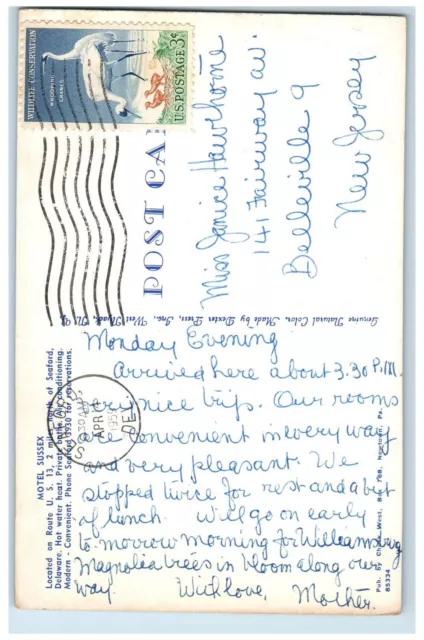 WILDLIFE CONSERVATION
WHOOPING CRANES
3¢
U.S. POSTAGE
POST CA
Miss Janice Hawthorne
141 Fairway av.
Belleville 9
New Jersey
Genuine Natural Color, Made by Dexter Press, Inc. West Nyack, N. Y.
MOTEL SUSSEX
Located on Route U. S. 13, 2 miles north of Seaford,
Delaware. Hot water heat. Private baths. Air conditioning.
Modern - Convenient. Phone Seaford 9930 for reservations.
APR
DEL
Monday Evening
Arrived here about 3.30 P.M.
very nice trip. Our rooms
are convenient in every way
and very pleasant. We
stopped twice for rest and a bit
of lunch. Will go on early
to morrow morning for Williamsburg
Magnolia trees in bloom along our
way. With love, Mother.
Pub. by Chas. West, Box 788, Newtown, Pa.
85334